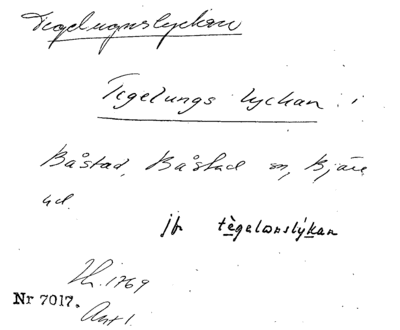 Tegelugnslyckan
Tegelungs lyckan i
Båstad, Båstad sn, Bjäre
hd.
jfr tègelωnslýkan
Hr. 1769
Nr 7017.
Ant 1.